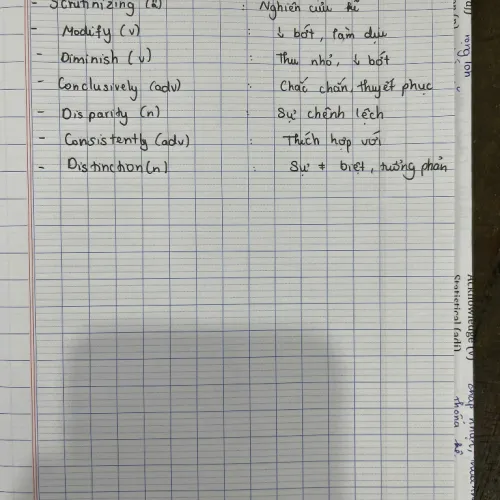 - Scrutinizing : Nghiên cứu kĩ
- Modify (v) : ↓ bớt, làm dịu
- Diminish (v) : Thu nhỏ, ↓ bớt
- Conclusively (adv) : Chắc chắn, thuyết phục
- Disparity (n) : Sự chênh lệch
- Consistently (adv) : Thích hợp với
- Distinction (n) : Sự ≠ biệt, tương phản
Acknowledge (v)
Statistical (adj) thống kê